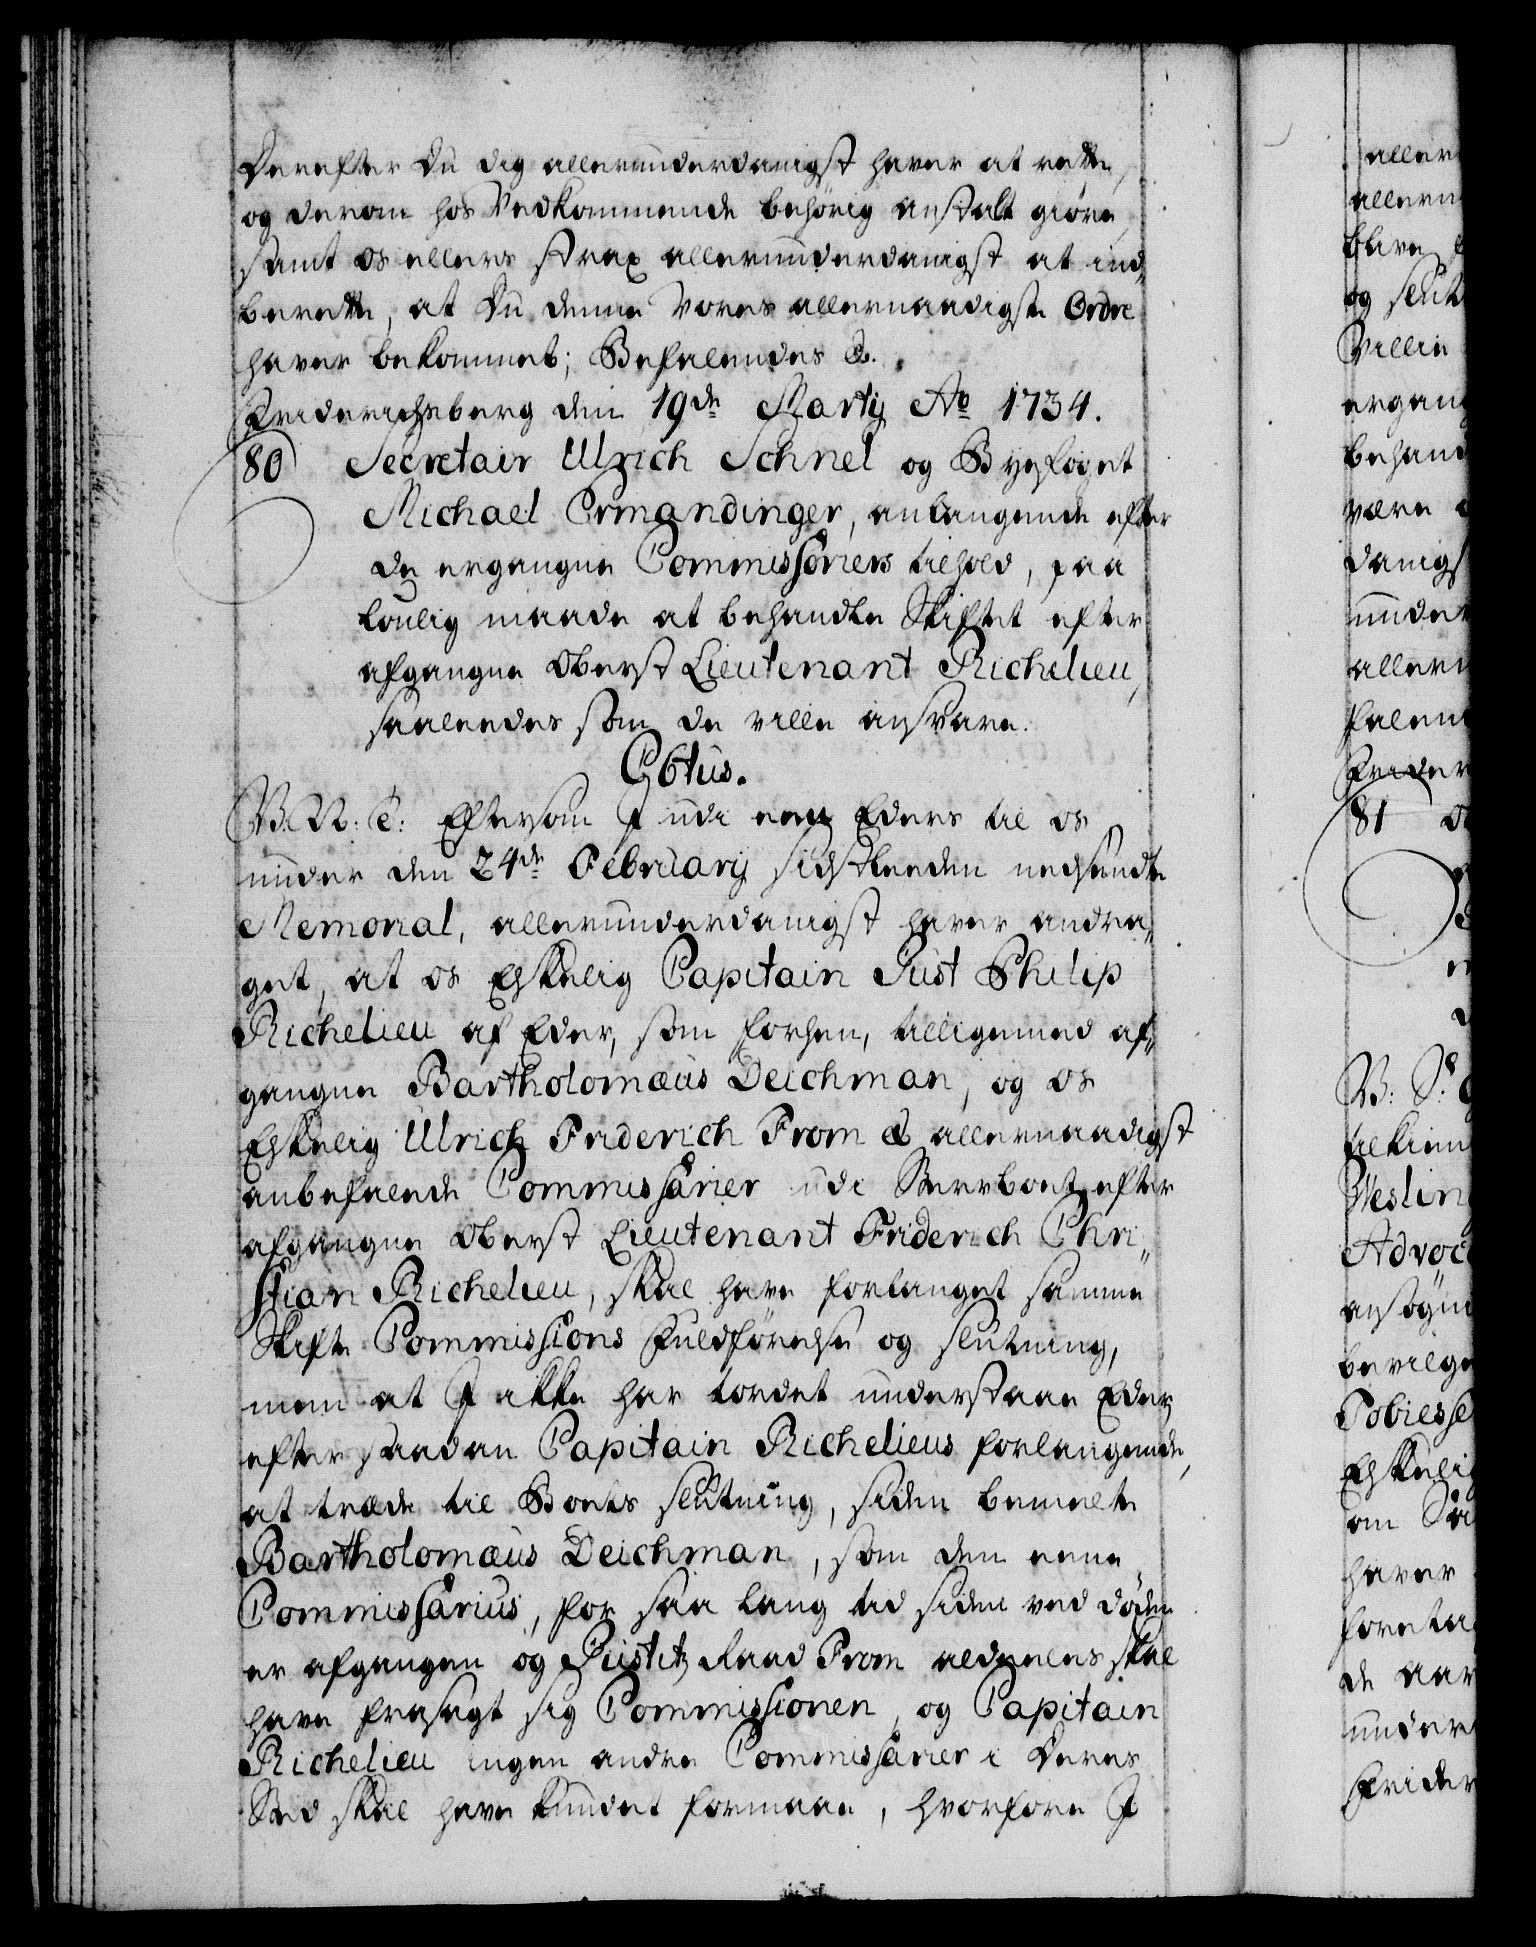 Derefter Du dig allerunderdanigst haver at rette,
og derom hos Vedkommende behörig anstalt giöre,
samt os ellers strax allerunderdanigst at ind„
berette, at Du denne Vores allernaadigste Ordre
haver bekommet; Befalendes &.
Friderichsberg den 19de Martij Ao 1734.
80 Secretair Ulrich Schnel og Byefoget
Michael Ermandinger, anlangende efter
de ergangne Commissoriers tilhold, paa
lovlig maade at behandle Skiftet efter
afgangne Oberst Lieutenant Richelieu,
saaleedes som de ville ansvare.
C6tus.
V. V: T: Eftersom I udi een Eders til os
under den 24de Februarij sidstleeden nedsendte
Memorial, allerunderdanigst haver andra„
get, at os Elskelig Capitain Just Philip
Richelieu af Eder, som forhen, tilligemed af„
gangne Bartholomæus Deichman, og os
Elskelig Ulrich Friderich From & allernaadigst
anbefalede Commissarier udi Sterboet efter
afgangne Oberst Lieutenant Friderich Chri„
stian Richelieu, skal have forlanget samme
Skifte Commissions Fuldförelse og slutning,
men at I ikke har tordet understaae Eder,
efter saadan Capitain Richelieus forlangende,
at træde til Boets slutning, siden bemelte
Bartholomæus Deichman, som den eene
Commissarius, for saa lang tid siden ved döden
er afgangen og Justitz Raad From aldeeles skal
have frasagt sig Commissionen, og Capitain
Richelieu ingen andre Commissarier i Deres
Sted skal have kundet formaae, hvorfore I
aller
allern
blive
og slut
Villie
ergang
behand
være
danigs
under
allern
falen
Frider
81
V: Sr:
tilkien
Weslin
Advoc
ansögni
bevilge
Tobiesse
Elskelig
om
haver
foreta
de aar
under
Frider